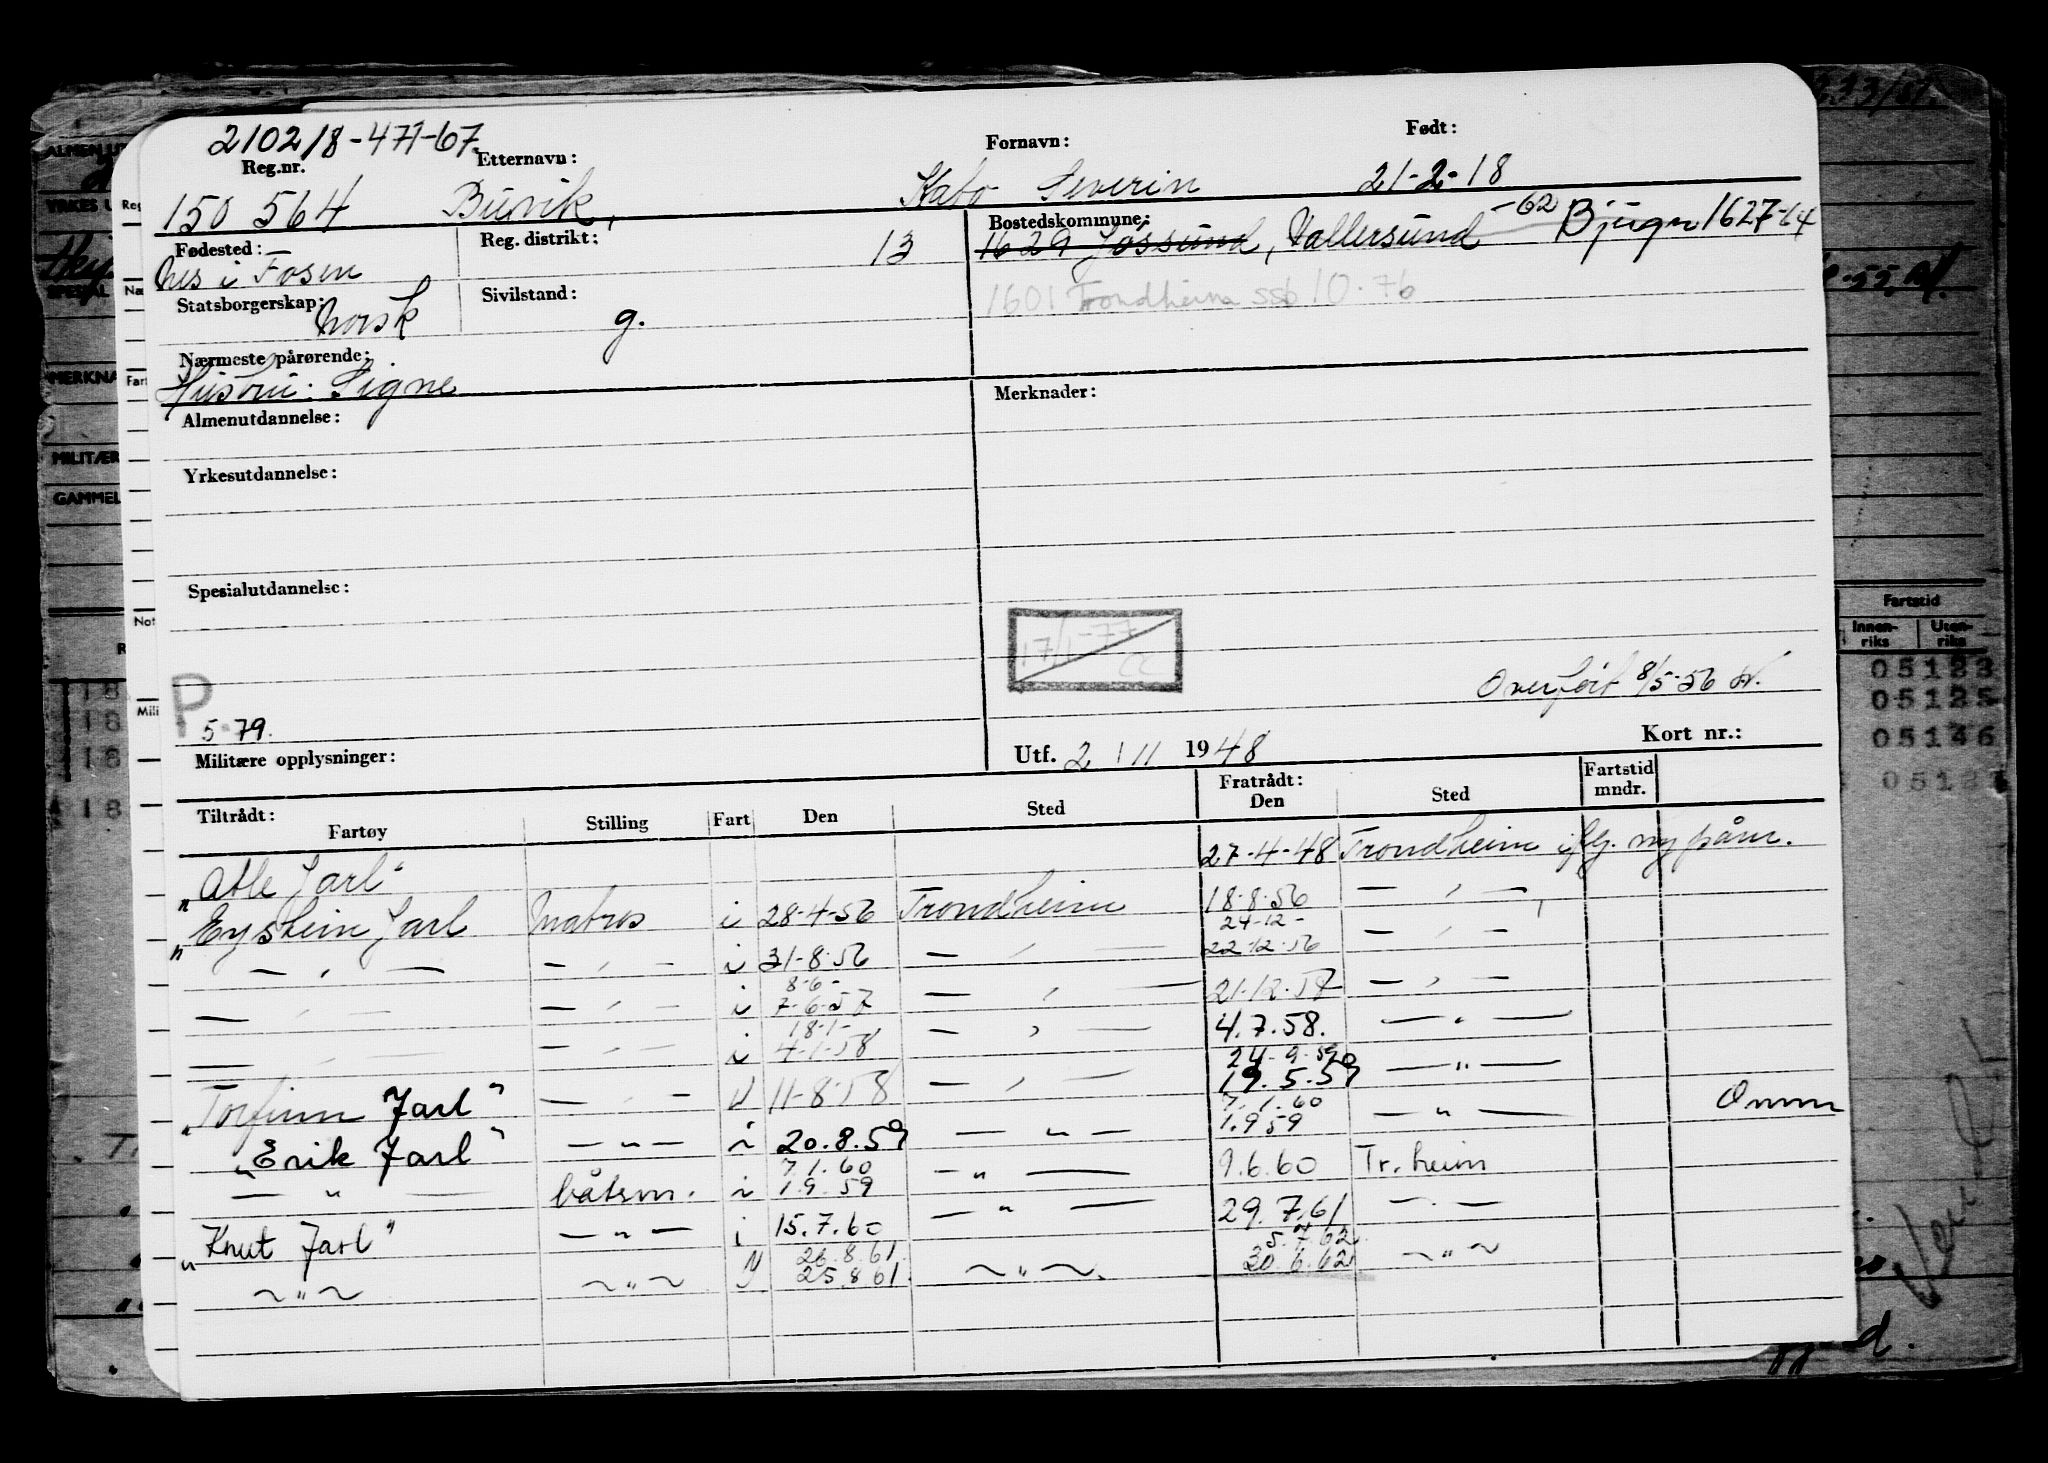 210218-471-67.
Reg.nr. Etternavn: Fornavn: Født:
150 564 Buvik, Kato Severin 21-2-18
Fødested: Reg. distrikt: 13 Bostedskommune:
Nes i Fosen 1629 Jøssund, Vallersund -62 Bjugn 1627-64
Statsborgerskap: Norsk Sivilstand: g. 1601 Trondheim ssb 10.76
Nærmeste pårørende:
Hustru: Signe
Almenutdannelse: Merknader:
Yrkesutdannelse:
Spesialutdannelse:
17/1-77
P
5.79. Overført 8/5-56
Militære opplysninger: Utf. 2 / 11 1948 Kort nr.:
Tiltrådt: Fartøy Stilling Fart Den Sted Fratrådt: Den Sted Fartstid mndr.
"Atle Jarl" 27-4-48 Trondheim iflg. ny påm.
"Eystein Jarl Matros i 28-4-56 Trondheim 18-8-56 — " —
24-12-
— " — — " — i 31-8-56 — " — 22-12-56 — " —
8-6-
— " — — " — i 7-6-57 — " — 21-12-57 — " —
18-1-
— " — — " — i 4-1-58 — " — 4.7.58. — " —
24-9-59
"Torfinn Jarl" — " — U 11-8-58 — " — 19.5.59 — " —
7.1.60
"Erik Jarl" — " — i 20.8.59 — " — 1.9.59 — " —
7.1.60
— " — båtsm. i 1.9.59 — " — 9.6.60 Tr.heim
"Knut Jarl" — " — i 15.7.60 — " — 29.7.61 — " —
26.8.61. 5.7.62
~ " ~ ~ " ~ 25.8.61. ~ " ~ 30.6.62 ~ " ~
Fartstid
Innen-riks Uten-riks
05123
05125
05146
ALMEN
YRKES
SPESIAL
MERKNA
MILITÆR
GAMMEL